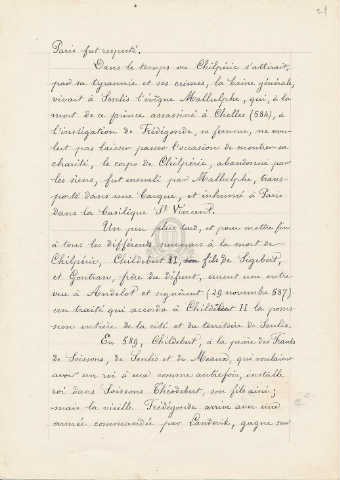 21
Paris fut respecté.
Dans le temps où Chilpéric s'attirait,
par sa tyrannie et ses crimes, la haine générale,
vivait à Senlis l'évêque Mallulphe, qui, à la
mort de ce prince assassiné à Chelles (584), à
l'instigation de Frédégonde, sa femme, ne vou-
lut pas laisser passer l'occasion de montrer sa
charité, le corps de Chilpéric, abandonné par
les siens, fut enseveli par Mallulphe, trans-
porté dans une barque, et inhumé à Paris
dans la basilique St Vincent.
Un peu plus tard, et pour mettre fin
à tous les différents survenus à la mort de
Chilpéric, Childebert II, son fils de Sigebert,
et Gontran, frère du défunt, eurent une entre
vue à Andelot et signèrent (29 novembre 587)
un traité qui accorda à Childebert II la posses
sion entière de la cité et du territoire de Senlis.
En 589, Childebert, à la prière des Francs
de Soissons, de Senlis et de Meaux, qui voulaient
avoir un roi à eux comme autrefois, installe
roi dans Soissons Théodebert, son fils aîné;
mais la vieille Frédégonde arrive avec une
armée commandée par Landéric, gagne sur